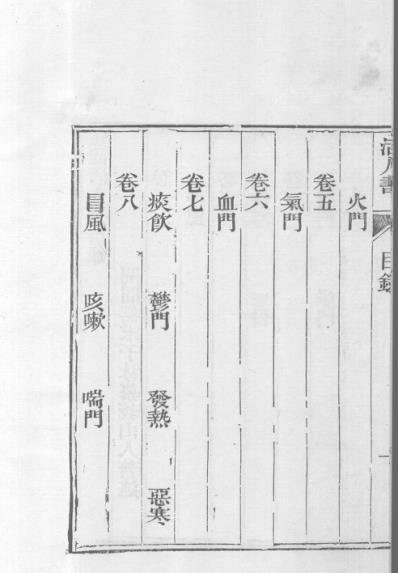 活人書 目錄 一
火門
卷五
氣門
卷六
血門
卷七
痰飲 鬱門 發熱 惡寒
卷八
風 咳嗽 喘門